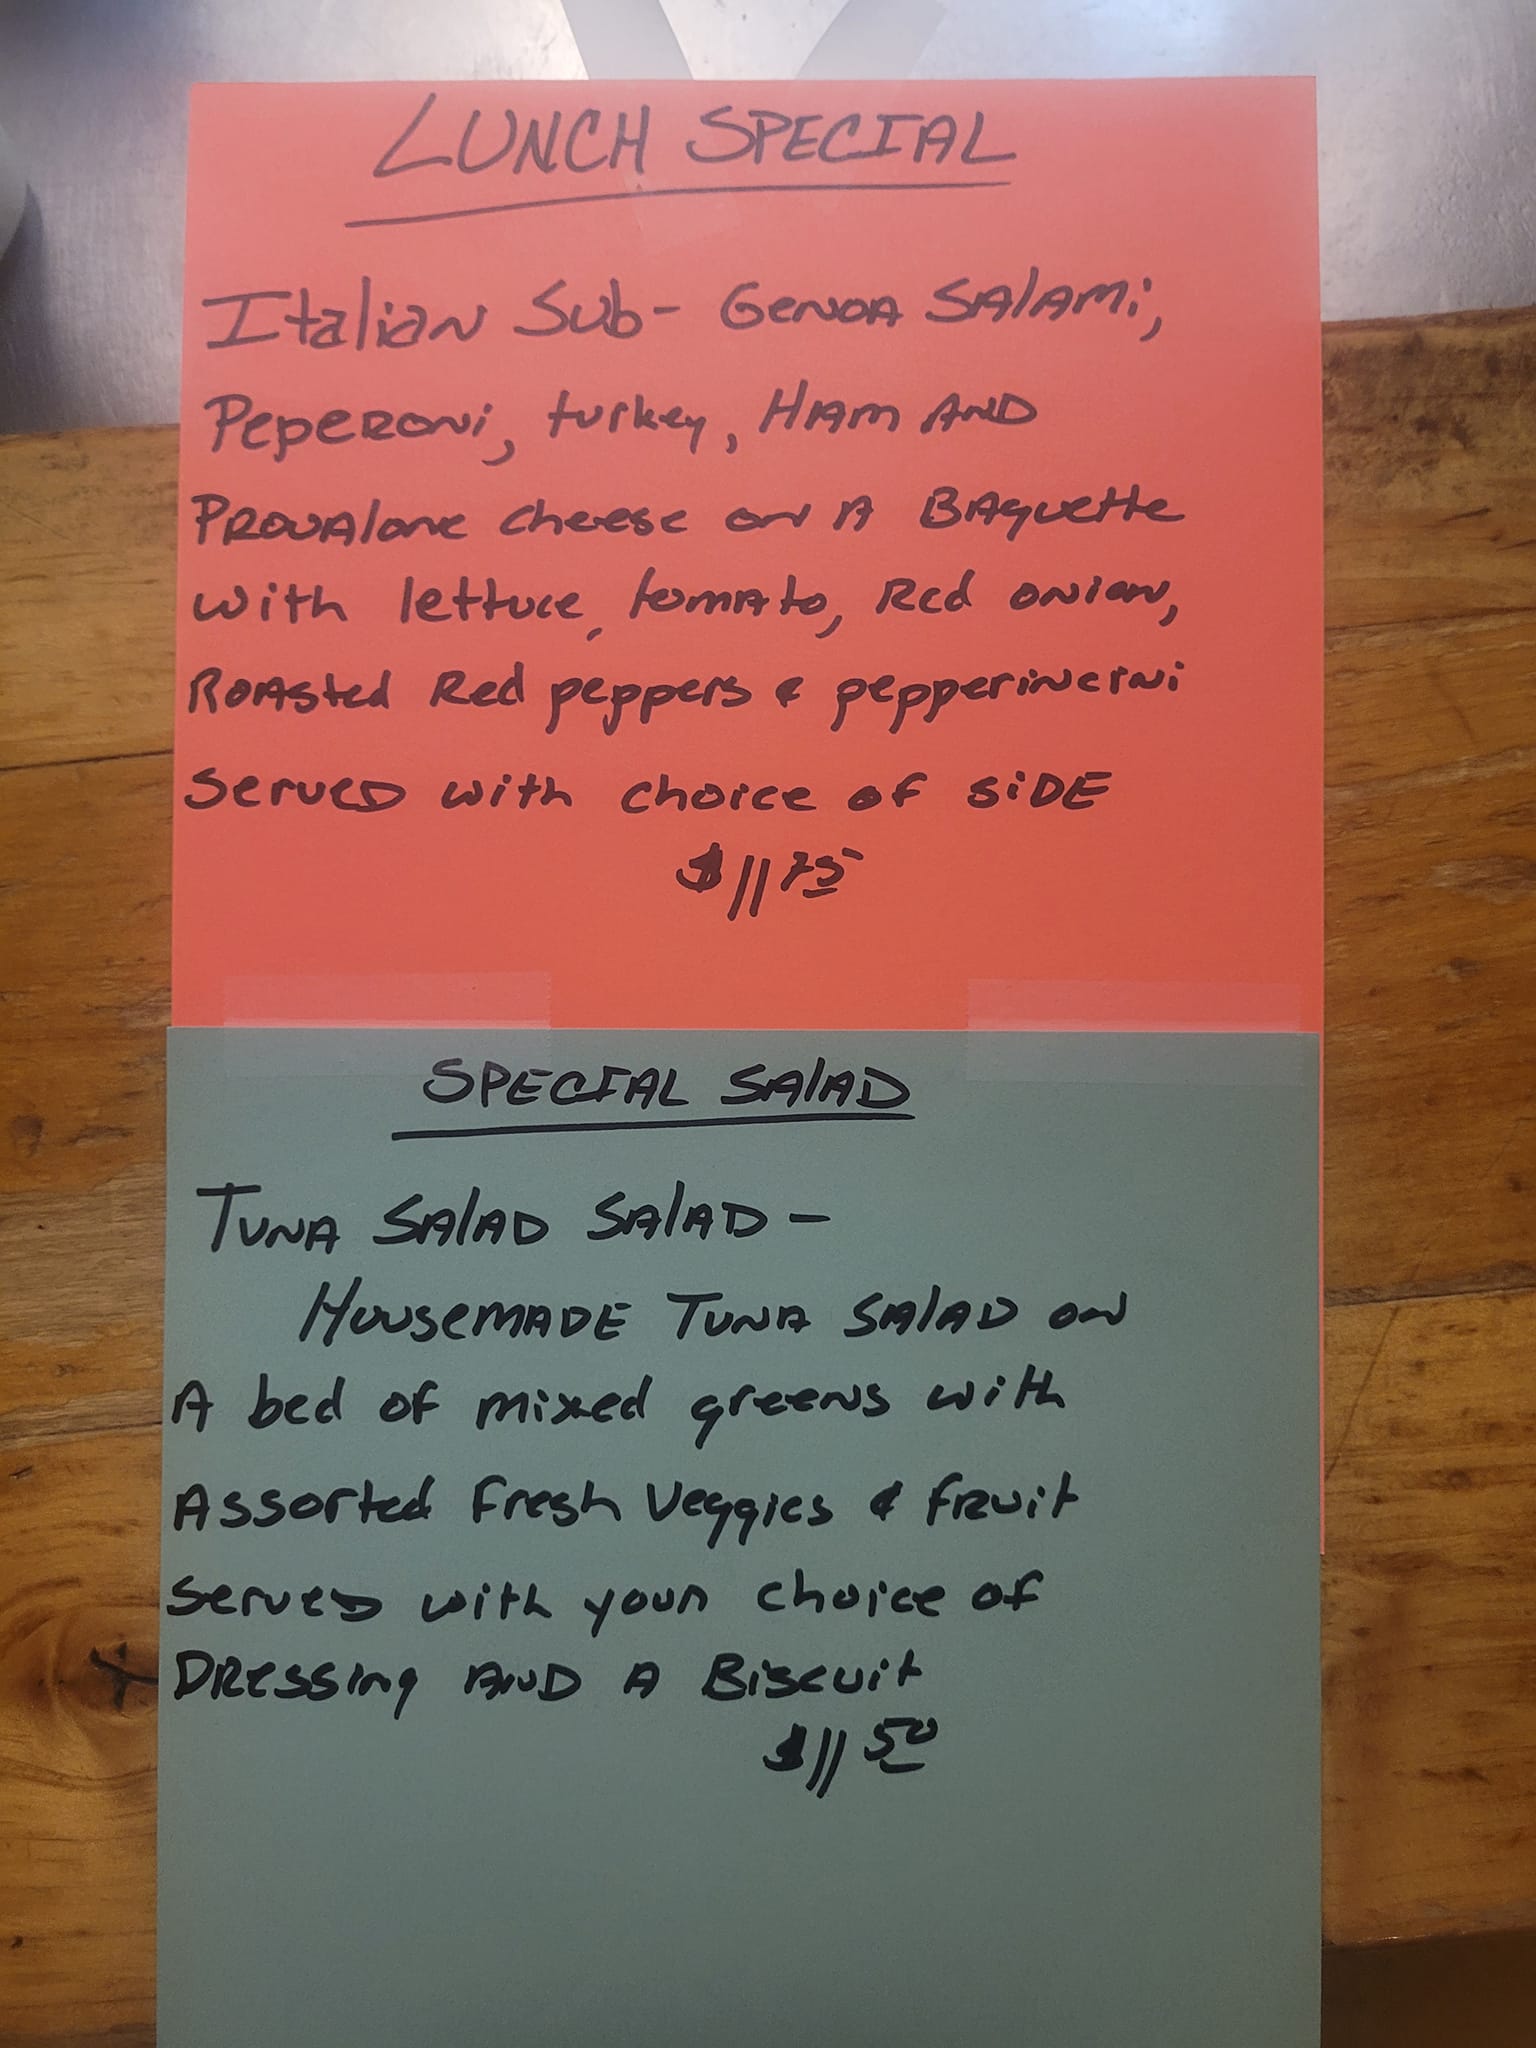 LUNCH SPECIAL
Italian Sub - Genoa Salami,
Peperoni, turkey, Ham AND
Provalone cheese on A Baguette
with lettuce, tomato, Red onion,
Roasted Red peppers & pepperincini
served with choice of siDE
$11 75
SPECIAL SAlAD
Tuna SAlAD SAlAD -
HousemADE Tuna SAlAD on
A bed of mixed greens with
Assorted Fresh Veggies & fruit
serveD with your choice of
Dressing AND A Biscuit
$11 50